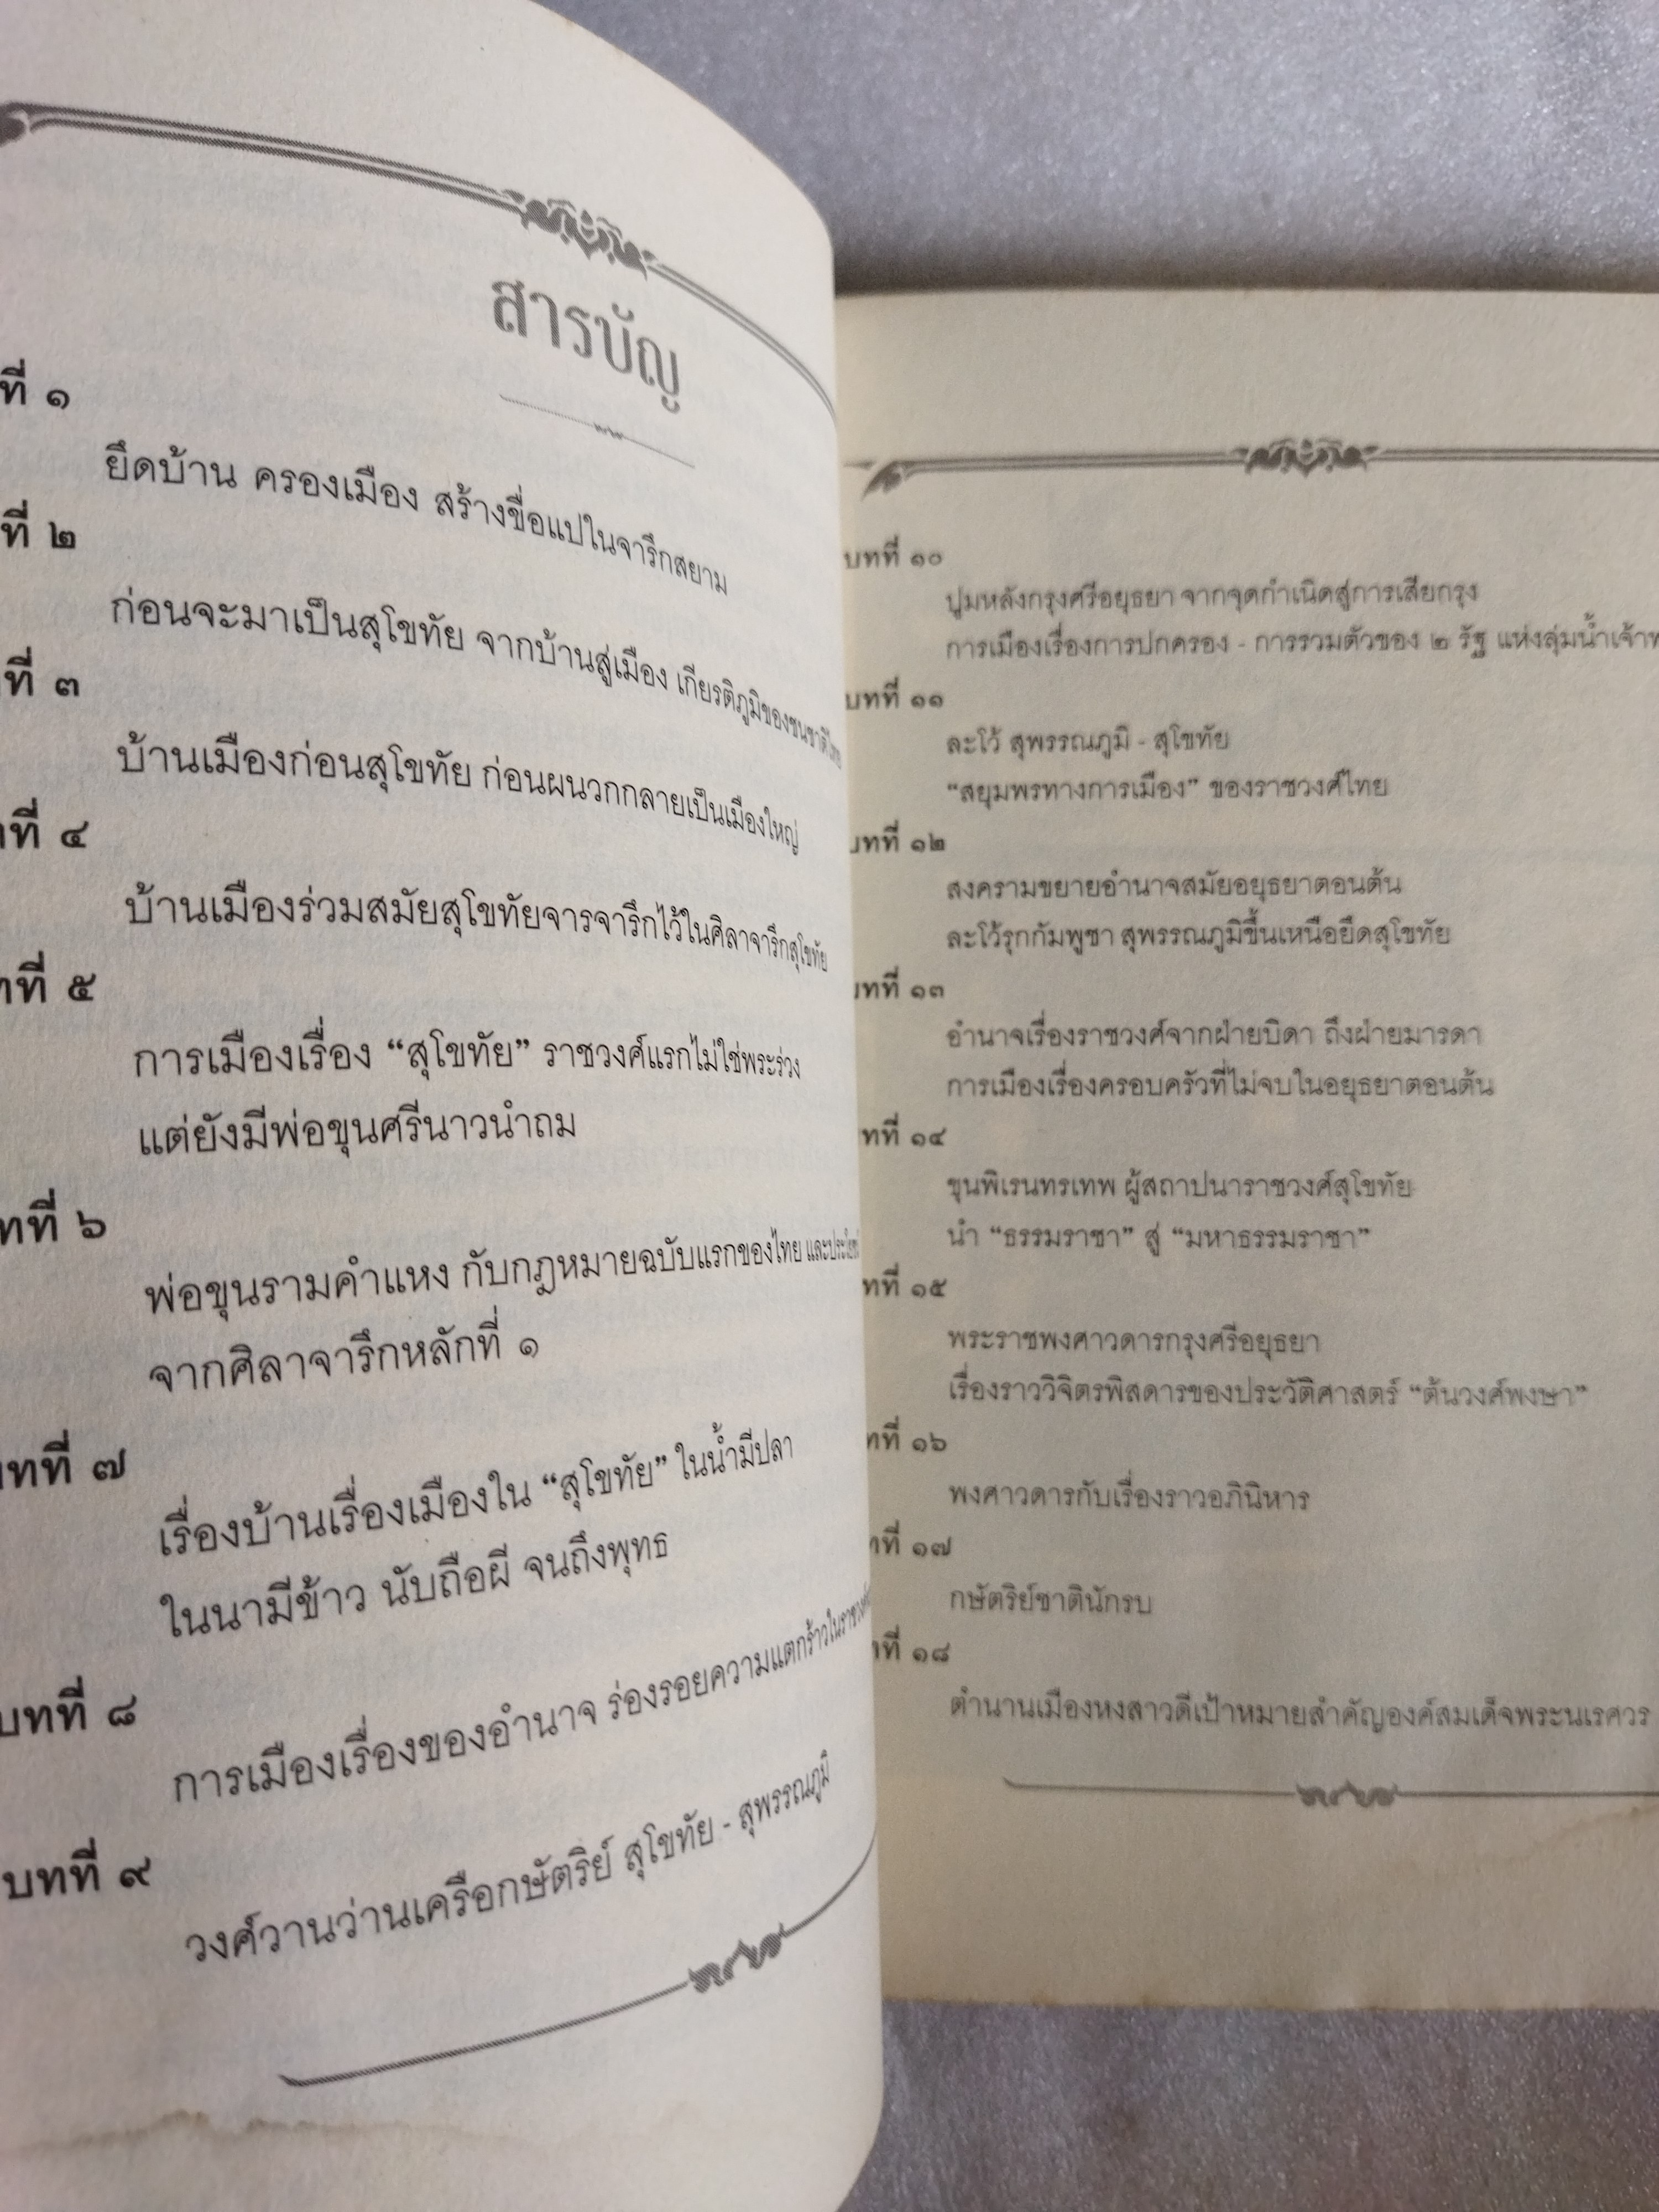 สารบัญ
ที่ ๑
ยึดบ้าน ครองเมือง สร้างขื่อแปในจารึกสยาม
ที่ ๒
ก่อนจะมาเป็นสุโขทัย จากบ้านสู่เมือง เกียรติภูมิของชนชาติไทย
ที่ ๓
บ้านเมืองก่อนสุโขทัย ก่อนผนวกกลายเป็นเมืองใหญ่
ที่ ๔
บ้านเมืองร่วมสมัยสุโขทัยจารจารึกไว้ในศิลาจารึกสุโขทัย
ที่ ๕
การเมืองเรื่อง “สุโขทัย” ราชวงศ์แรกไม่ใช่พระร่วง
แต่ยังมีพ่อขุนศรีนาวนำถม
ทที่ ๖
พ่อขุนรามคำแหง กับกฎหมายฉบับแรกของไทย
จากศิลาจารึกหลักที่ ๑
ทที่ ๗
เรื่องบ้านเรื่องเมืองใน “สุโขทัย” ในน้ำมีปลา
ในนามีข้าว นับถือผี จนถึงพุทธ
บทที่ ๘
การเมืองเรื่องของอำนาจ ร่องรอยความแตกร้าวใน
บทที่ ๙
วงศ์วานว่านเครือกษัตริย์ สุโขทัย - สุพรรณภูมิ
บทที่ ๑๐
ปูมหลังกรุงศรีอยุธยา จากจุดกำเนิดสู่การเสียกรุง
การเมืองเรื่องการปกครอง - การรวมตัวของ ๒ รัฐ แห่งลุ่มน้ำเจ้าพ
บทที่ ๑๑
ละโว้ สุพรรณภูมิ - สุโขทัย
“สยุมพรทางการเมือง” ของราชวงศ์ไทย
ทที่ ๑๒
สงครามขยายอำนาจสมัยอยุธยาตอนต้น
ละโว้รุกกัมพูชา สุพรรณภูมิขึ้นเหนือยึดสุโขทัย
ทที่ ๑๓
อำนาจเรื่องราชวงศ์จากฝ่ายบิดา ถึงฝ่ายมารดา
การเมืองเรื่องครอบครัวที่ไม่จบในอยุธยาตอนต้น
ทที่ ๑๔
ขุนพิเรนทรเทพ ผู้สถาปนาราชวงศ์สุโขทัย
นำ “ธรรมราชา” สู่ “มหาธรรมราชา”
ทที่ ๑๕
พระราชพงศาวดารกรุงศรีอยุธยา
เรื่องราววิจิตรพิสดารของประวัติศาสตร์ “ต้นวงศ์พงษา”
ทที่ ๑๖
พงศาวดารกับเรื่องราวอภินิหาร
ที่ ๑๗
กษัตริย์ชาตินักรบ
ที่ ๑๘
ตำนานเมืองหงสาวดีเป้าหมายสำคัญองค์สมเด็จพระนเรศวร